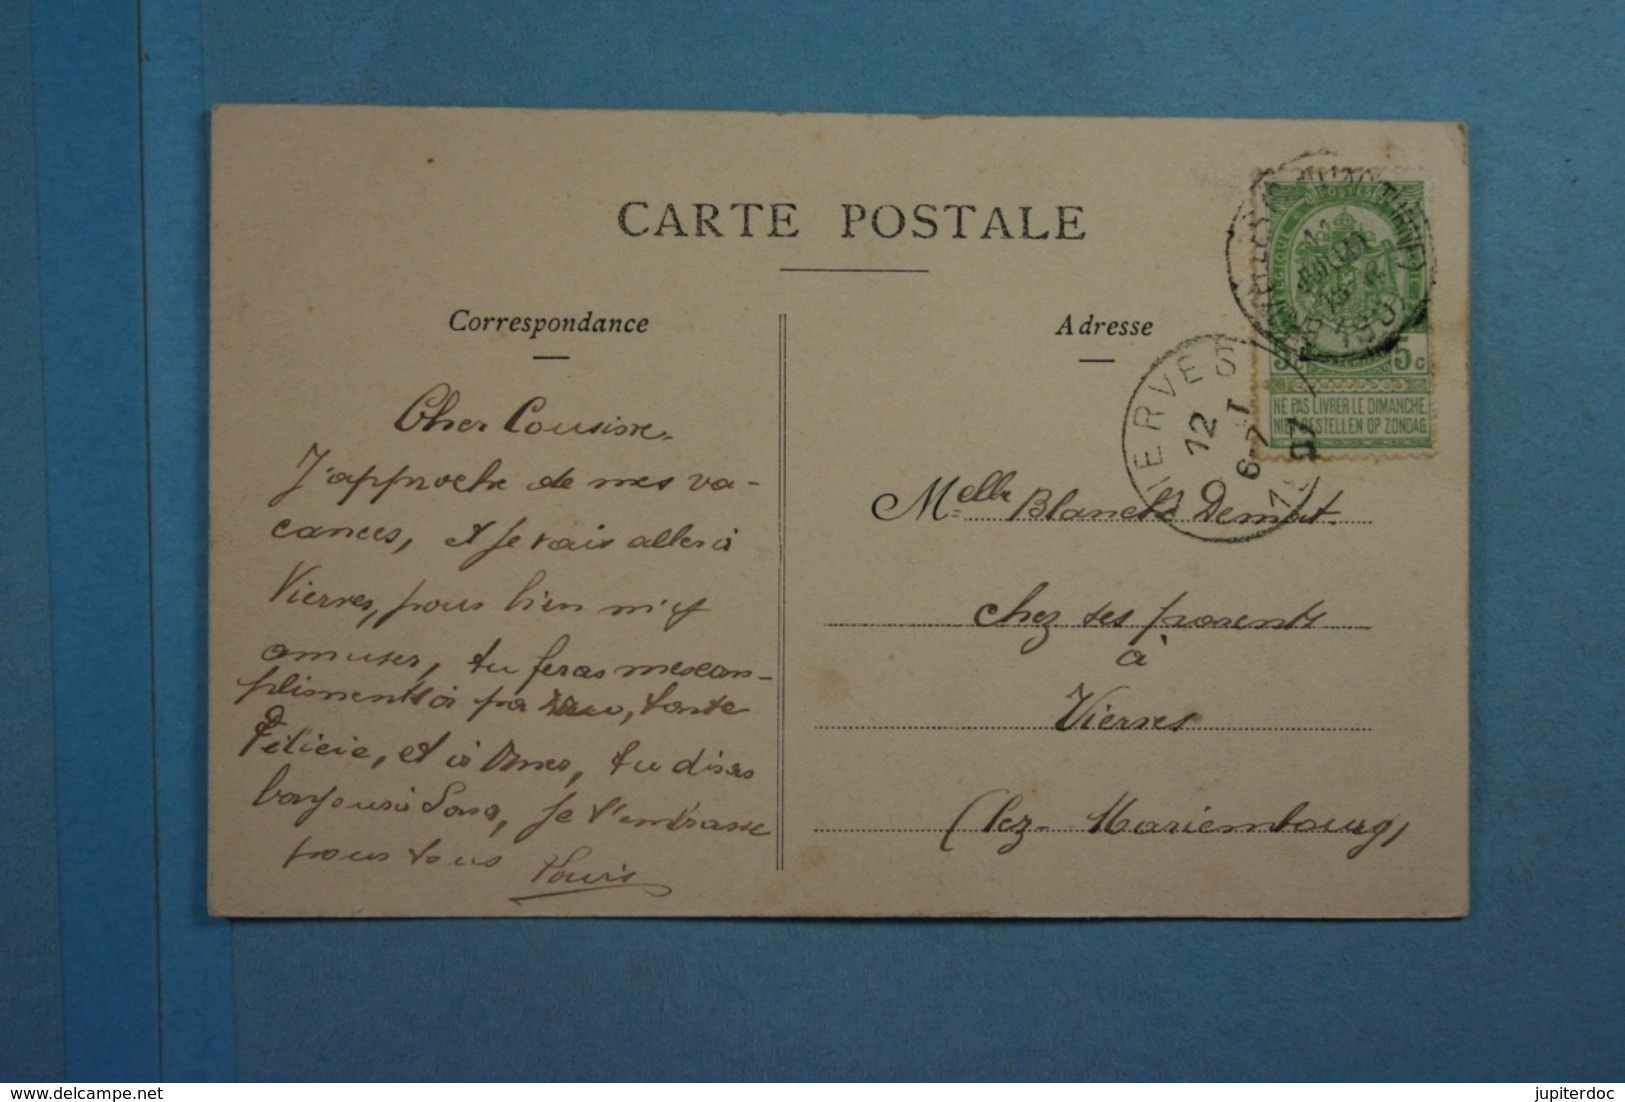 CARTE POSTALE
Correspondance
Cher Cousine.
J'approche de mes va-
cances, et je vais aller à
Vierves, pour bien m'y
amuser, tu feras mes com-
pliments à tante
Félicie, et à tu diras
bonjour à je t'embrasse
pour tous Louis
Adresse
POSTES
5 5 C
NE PAS LIVRER LE DIMANCHE
NIET BESTELLEN OP ZONDAG
VIERVES
12
6-7
Melle Blanche
chez ses parents
à
Vierves
(lez-Mariembourg)
delcampe.net
jupiterdoc